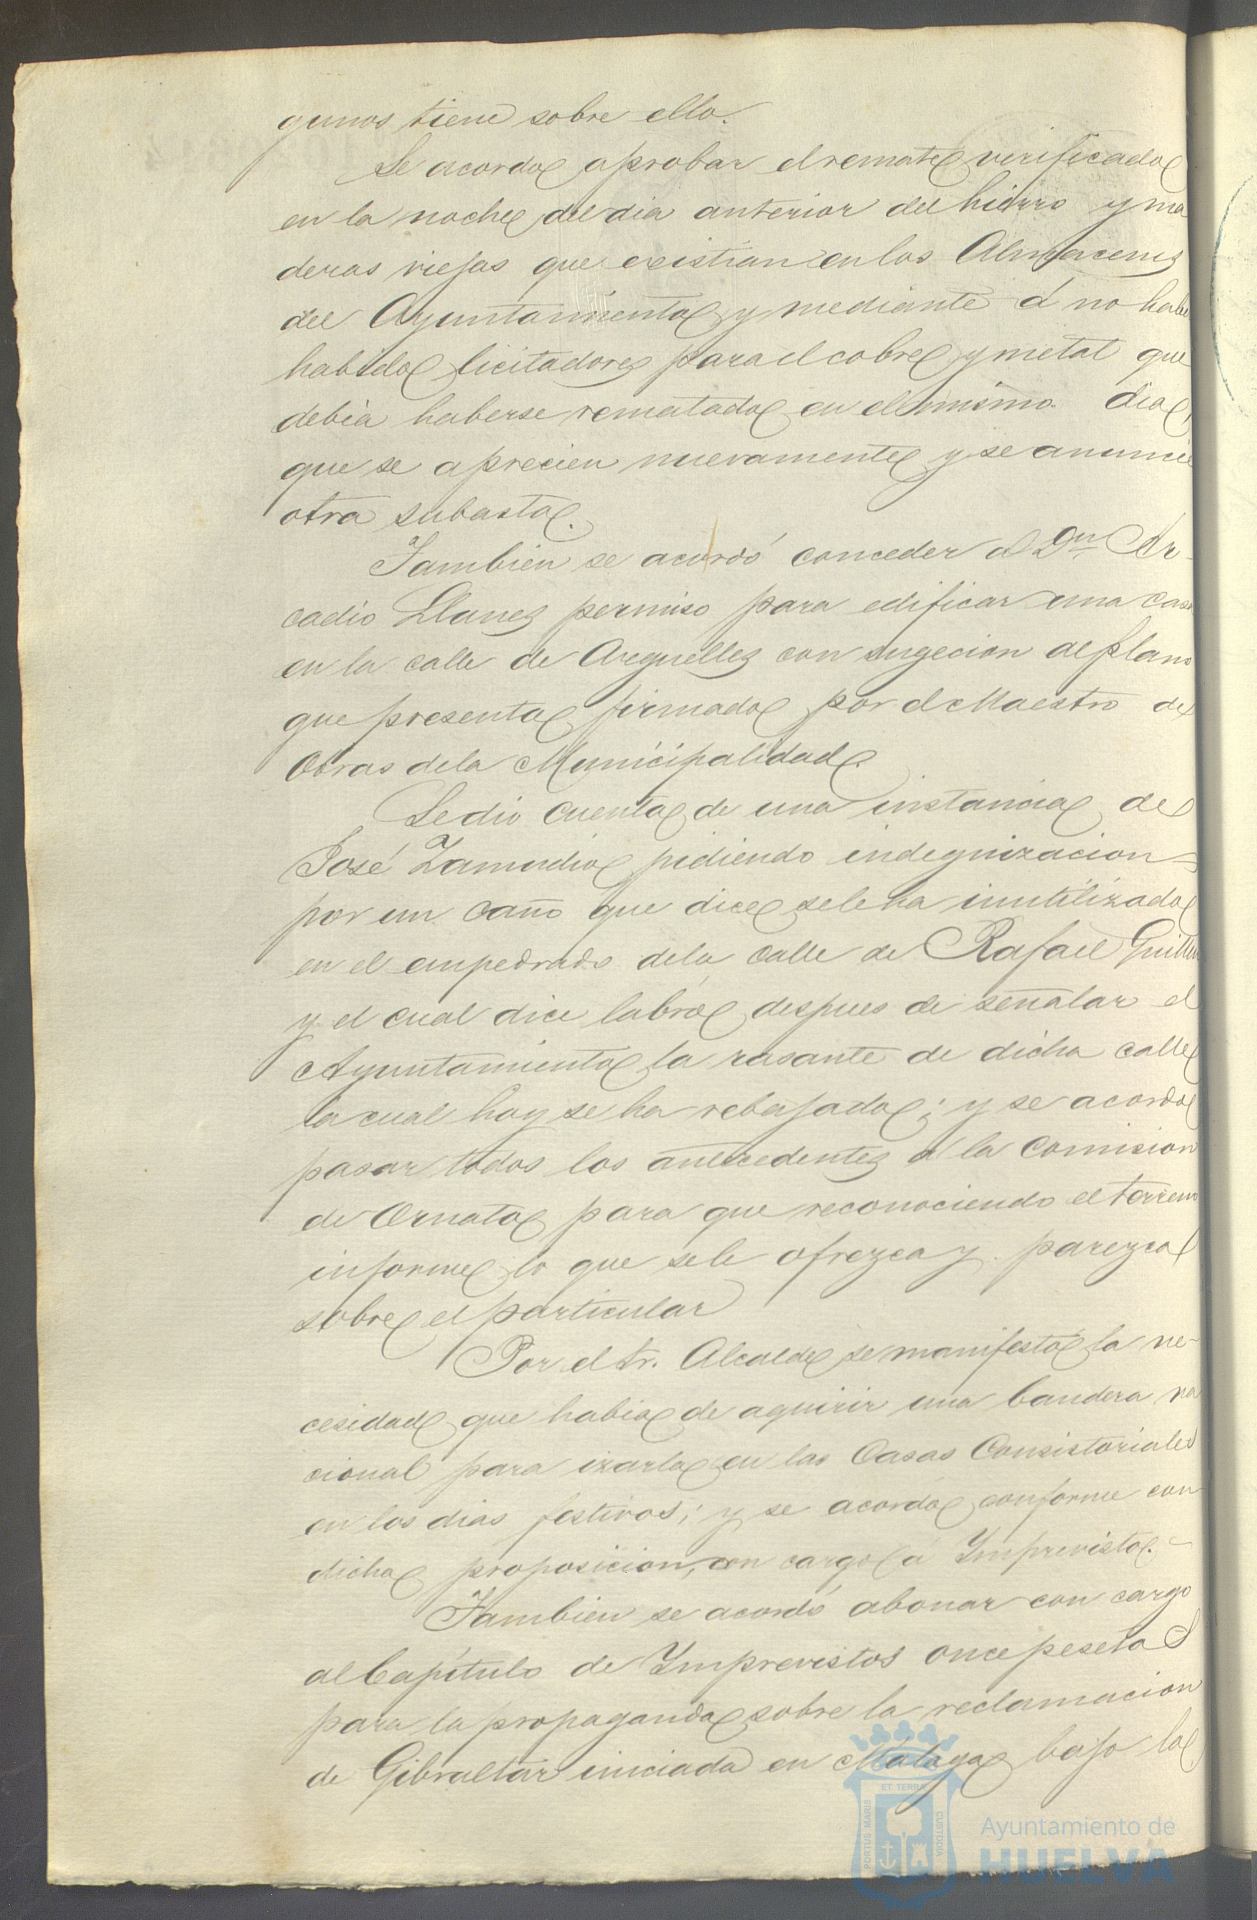 gunos tiene sobre ello.
Se acordo aprobar el remate verificado
en la noche del dia anterior del hierro y ma
deras viejas que existian en los Almacenes
del Ayuntamiento y mediante á no haber
habido licitadores para el cobre y metal que
debia haberse rematado en el mismo dia,
que se aprecien nuevamente y se anuncie
otra subasta.
Tambien se acordó conceder a Dn Ar-
cadio Llanes permiso para edificar una casa
en la calle de Arguelles con sugecion al plano
que presenta firmado por el Maestro de
Obras de la Municipalidad.
Se dio cuenta de una instancia de
José Zamudio pidiendo indegnizacion
por un caño que dice se le ha inutilizado
en el empedrado de la calle de Rafael Guillen
y el cual dice labró despues de señalar el
Ayuntamiento la rasante de dicha calle
la cual hoy se ha rebajado; y se acordó
pasar todos los antecedentes á la Comision
de Ornato para que reconociendo el terreno
informe lo que se le ofrezca y parezca
sobre el particular
Por el Sr. Alcalde se manifestó la ne-
cesidad que habia de aquirir una bandera na
cional para izarla en las Casas Consistoriales
en los dias festivos; y se acordó conforme con
dicha proposicion, con cargo á Imprevisto.
Tambien se acordó abonar con cargo
al Capítulo de Imprevistos once pesetas
para la propaganda sobre la reclamacion
de Gibraltar iniciada en Malaga bajo la
PORTUS MARIS ET TERRAE CUSTODIA
Ayuntamiento de
HUELVA